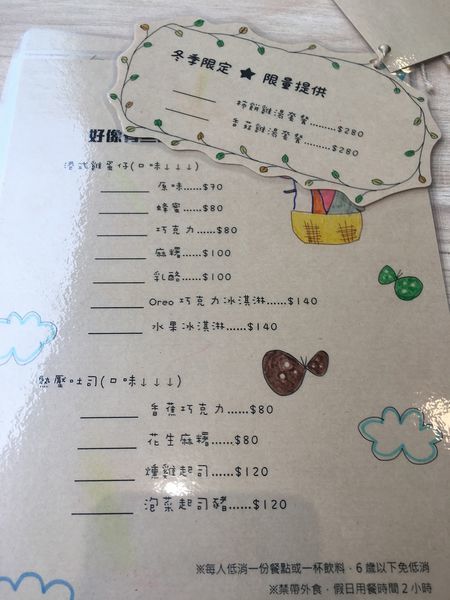 冬季限定 ★ 限量提供
柿餅雞湯套餐........$280
香菇雞湯套餐........$280
好像有
港式雞蛋仔(口味↓↓↓)
原味.....$70
蜂蜜.....$80
巧克力.....$80
麻糬.....$100
乳酪.....$100
Oreo 巧克力冰淇淋.....$140
水果冰淇淋.....$140
熱壓吐司(口味↓↓↓)
香蕉巧克力.....$80
花生麻糬.....$80
燻雞起司......$120
泡菜起司豬......$120
※每人低消一份餐點或一杯飲料，6 歲以下免低消
※禁帶外食，假日用餐時間 2 小時